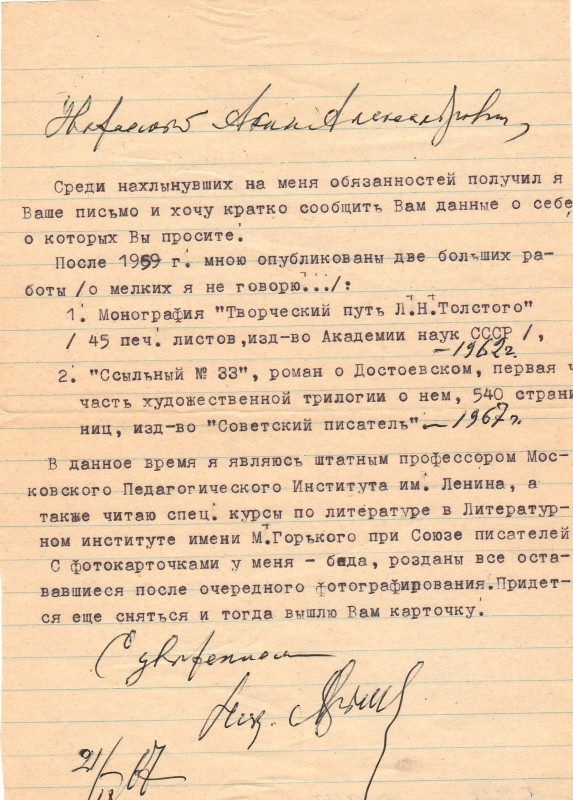 Александрович,
Среди нахлынувших на меня обязанностей получил я
Ваше письмо и хочу кратко сообщить Вам данные о себе
о которых Вы просите.
После 1959 г. мною опубликованы две больших ра-
боты /о мелких я не говорю.../:
1. Монография "Творческий путь Л.Н.Толстого"
/ 45 печ. листов,изд-во Академии наук СССР /,
– 1962г.
2. "Ссыльный № 33", роман о Достоевском, первая ч
часть художественной трилогии о нем, 540 страни
ниц, изд-во "Советский писатель" – 1967 г.
В данное время я являюсь штатным профессором Мос-
ковского Педагогического Института им. Ленина, а
также читаю спец. курсы по литературе в Литератур-
ном институте имени М.Горького при Союзе писателей
С фотокарточками у меня - беда, розданы все оста-
вавшиеся после очередного фотографирования.Придет-
ся еще сняться и тогда вышлю Вам карточку.
С уважением
Ник.